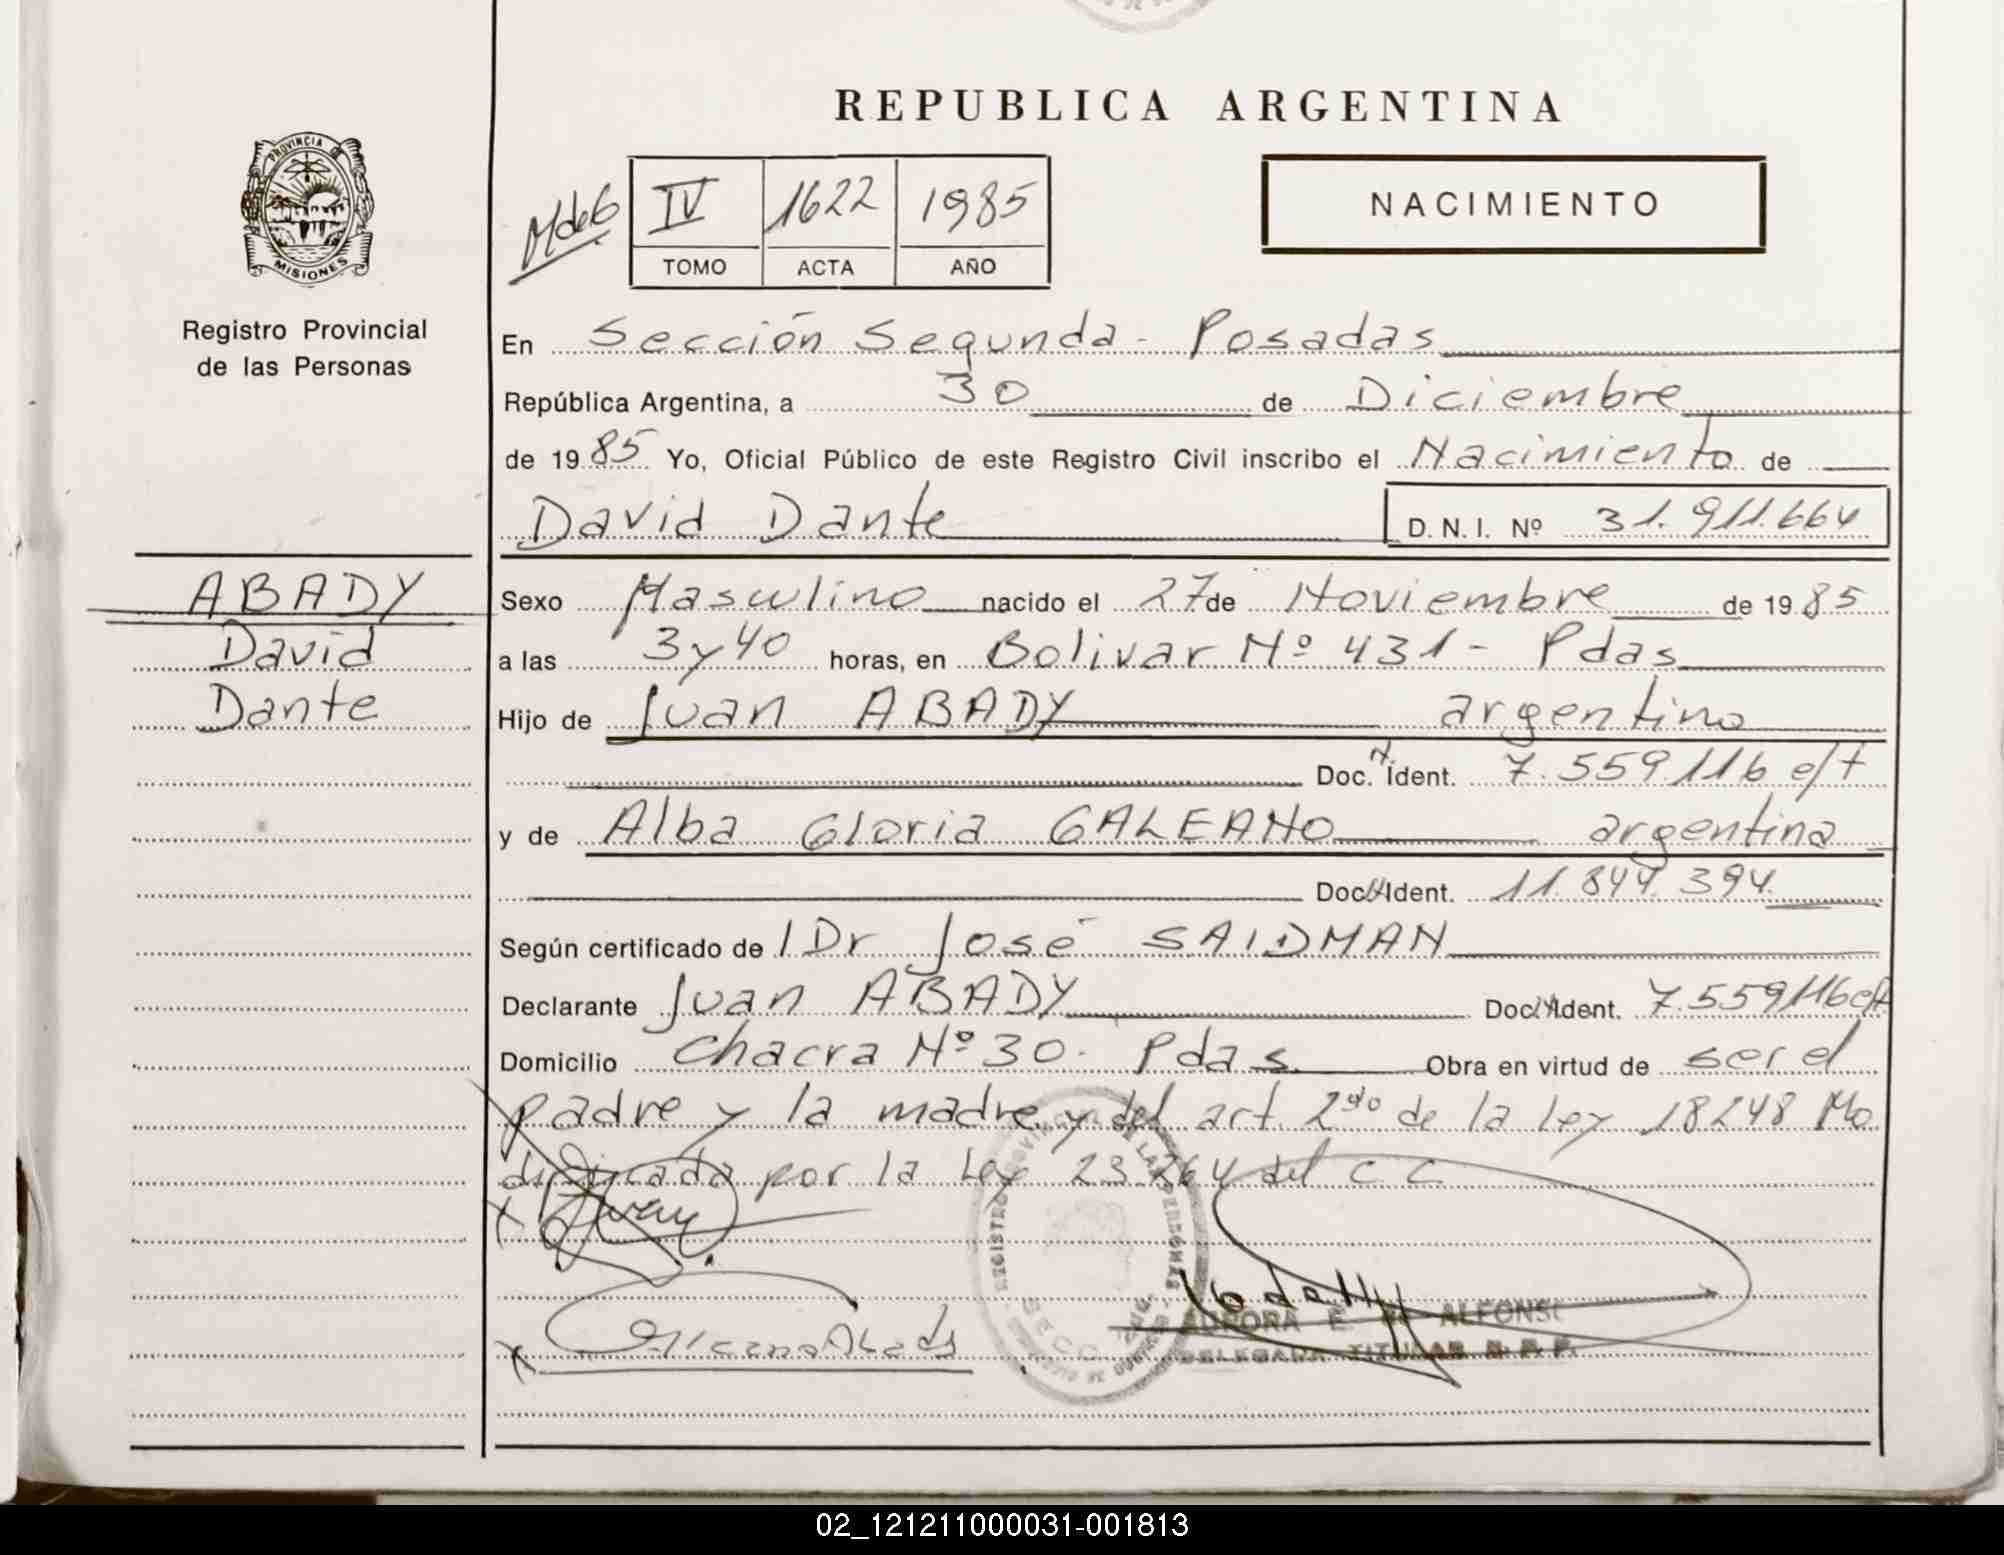 REPUBLICA ARGENTINA
PROVINCIA DE
MISIONES
Registro Provincial
de las Personas
MdeG
IV 1622 1985
TOMO ACTA AÑO
NACIMIENTO
En Sección Segunda - Posadas
República Argentina, a 30 de Diciembre
de 1985 Yo, Oficial Público de este Registro Civil inscribo el Nacimiento de
David Dante D.N.I. Nº 31.911.664
ABADY
David
Dante
Sexo Masculino nacido el 27 de Noviembre de 1985
a las 3 y 40 horas, en Bolivar Nº 431 - Pdas
Hijo de Juan ABADY argentino
Doc. N. Ident. 7.559.116 e/t
y de Alba Gloria GALEANO argentina
Doc. N Ident. 11.844.394
Según certificado de l Dr José SAIDMAN
Declarante Juan ABADY Doc. N Ident. 7.559116 e/t
Domicilio Chacra Nº 30. Pdas Obra en virtud de ser el
padre y la madre y del art. 2do de la Ley 18248 Mo
dificada por la Ley 23.264 del C C
x Juan
x
REGISTRO PROVINCIAL DE LAS PERSONAS
AURORA E. de ALFONSO
DELEGADA TITULAR R. P. P.
02_121211000031-001813